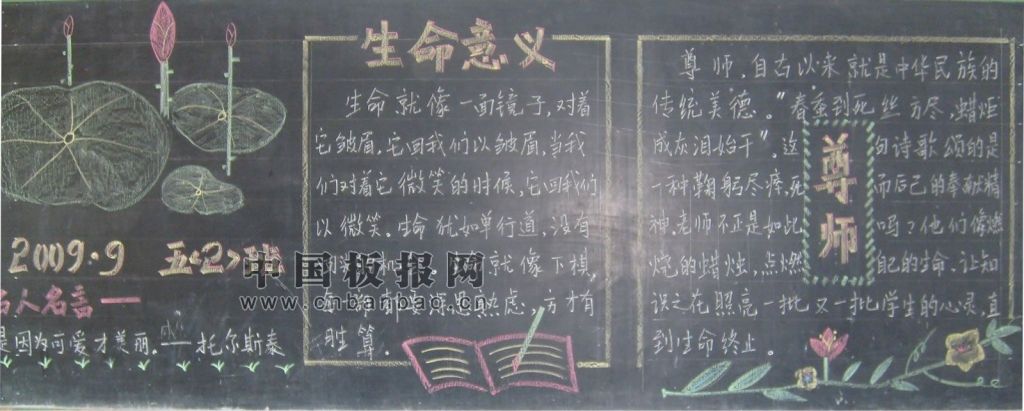 2009.9 五<2>班
名人名言—
是因为可爱才美丽。—托尔斯泰
生命意义
生命就像一面镜子,对着
它皱眉,它回我们以皱眉,当我
们对着它微笑的时候,它回我们
以微笑。生命犹如单行道,没有
就像下棋,
虑,方才有
胜算。
尊师
尊师,自古以来就是中华民族的
传统美德。"春蚕到死丝方尽,蜡炬
成灰泪始干",这句诗歌颂的是
一种鞠躬尽瘁,死而后已的奉献精
神。老师不正是如此吗?他们像燃
烧的蜡烛,点燃自己的生命,让知
识之花照亮一批又一批学生的心灵,直
到生命终止。
中国板报网
www.cnbanbao.cn